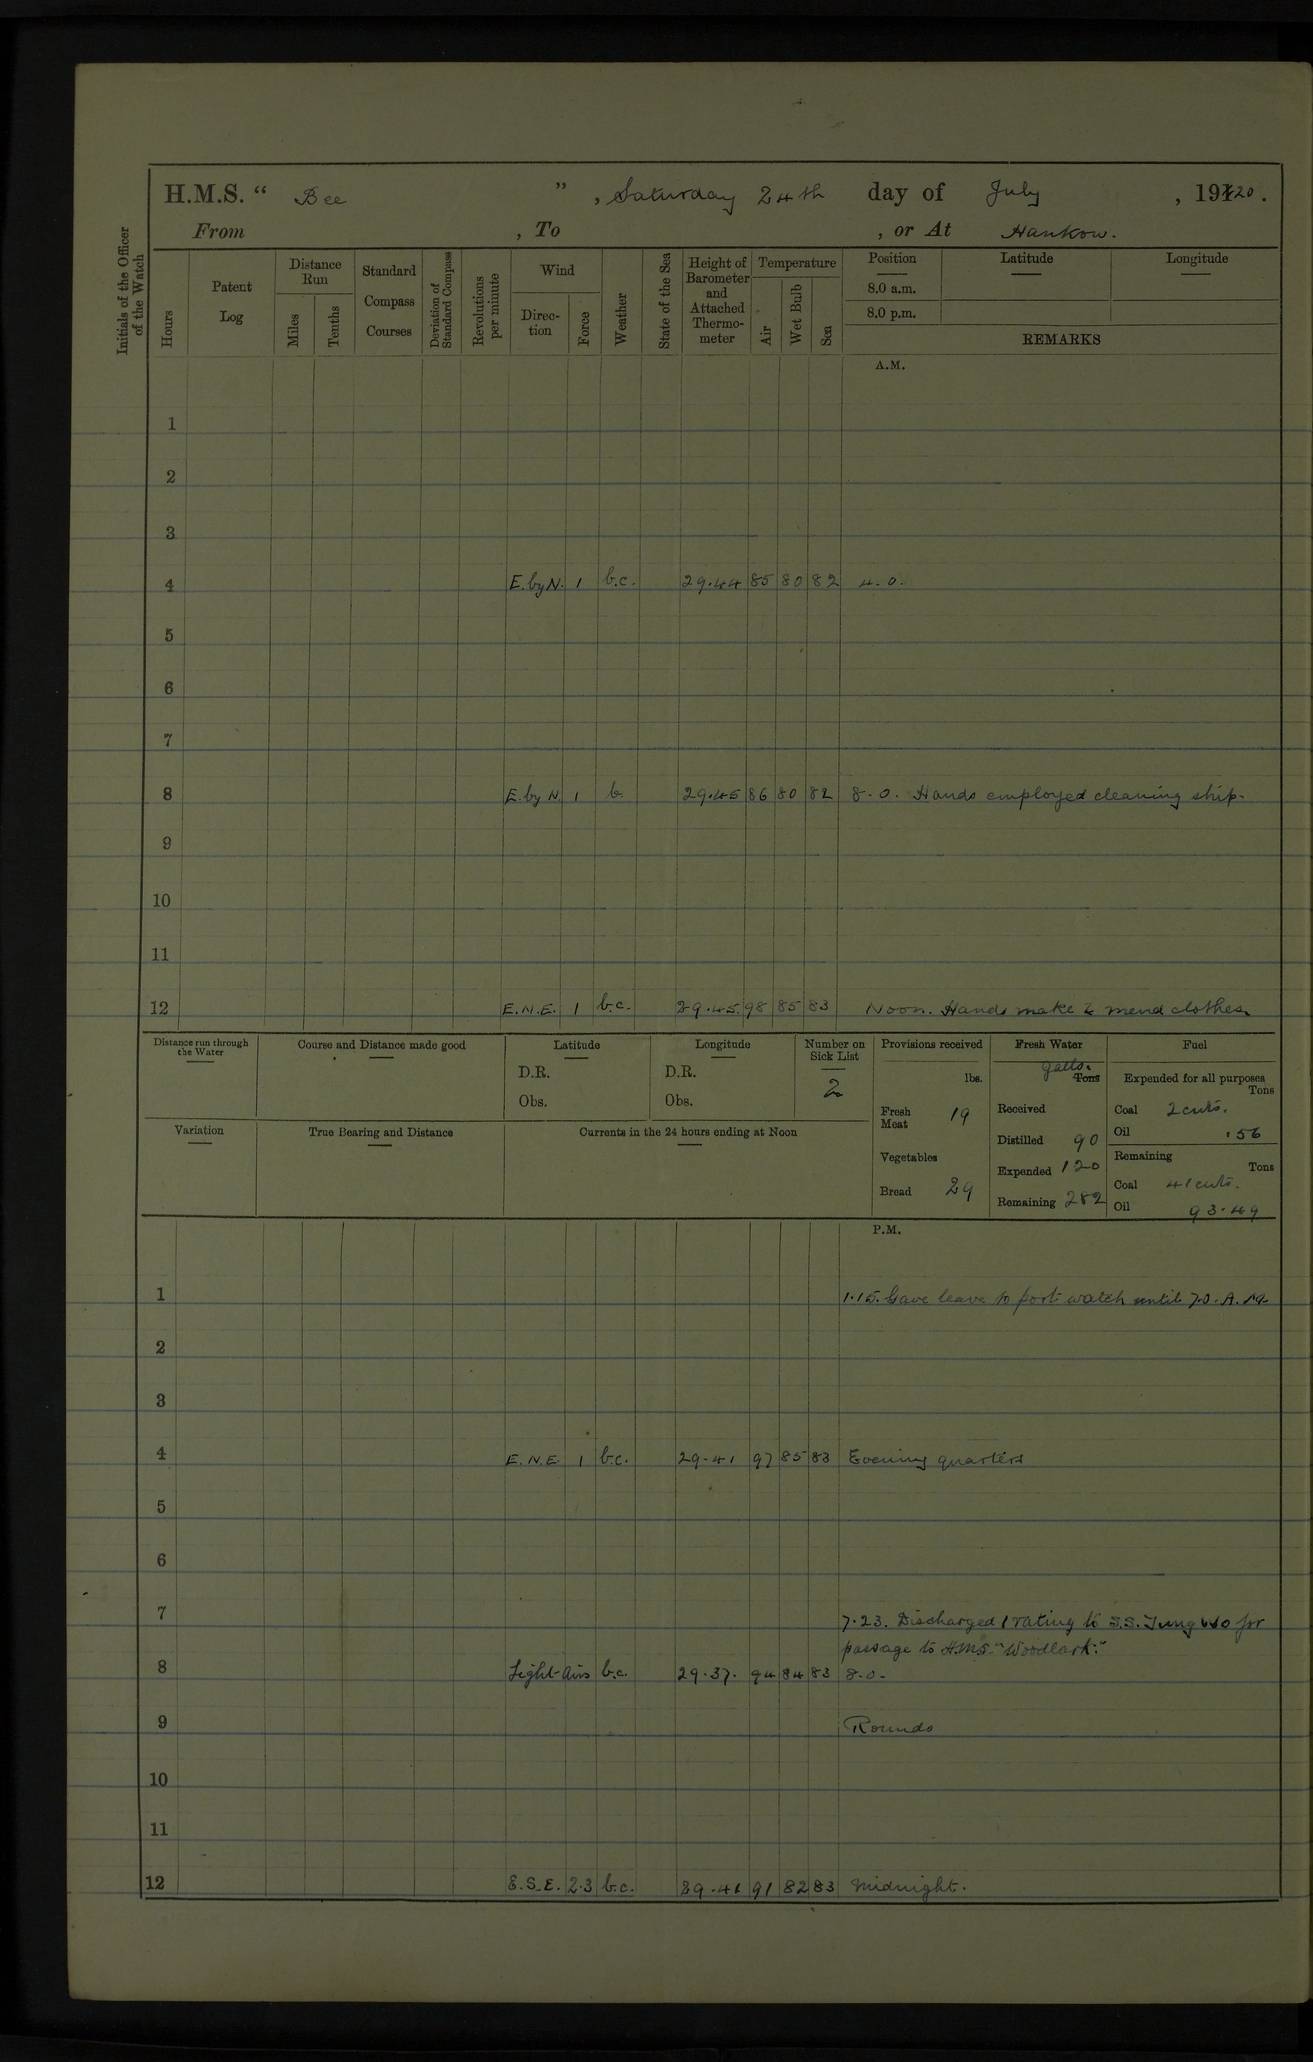 H.M.S. “ Bee ”, Saturday 24th day of July, 1920.
From , To , or At Hankow.
Initials of the Officer of the Watch
Hours
Patent Log
Distance Run
Miles
Tenths
Standard Compass Courses
Deviation of Standard Compass
Revolutions per minute
Wind
Direction
Force
Weather
State of the Sea
Height of Barometer and Attached Thermometer
Temperature
Air
Wet Bulb
Sea
Position Latitude Longitude
8.0 a.m.
8.0 p.m.
REMARKS
A.M.
1
2
3
4 E. by N. 1 b.c. 29.44 85 80 82 4.0.
5
6
7
8 E. by N. 1 b. 29.45 86 80 82 8.0. Hands employed cleaning ship.
9
10
11
12 E.N.E. 1 b.c. 29.45 98 85 83 Noon. Hands make & mend clothes.
Distance run through the Water
Course and Distance made good
Latitude
D.R.
Obs.
Longitude
D.R.
Obs.
Number on Sick List
2
Provisions received
lbs.
Fresh Meat 19
Vegetables
Bread 29
Fresh Water
galls. Tons
Received
Distilled 90
Expended 120
Remaining 282
Fuel
Expended for all purposes
Tons
Coal 2 cwts.
Oil .56
Remaining
Tons
Coal 41 cwts.
Oil 93.49
Variation
True Bearing and Distance
Currents in the 24 hours ending at Noon
P.M.
1 1.15. Gave leave to port watch until 7.0. A.M.
2
3
4 E.N.E. 1 b.c. 29.41 97 85 83 Evening quarters
5
6
7 7.23. Discharged 1 rating to S.S. Tung Wo for
passage to H.M.S. "Woodlark."
8 Light airs b.c. 29.37. 94 84 83 8.0.
9 Rounds
10
11
12 E.S.E. 2.3 b.c. 29.41 91 82 83 Midnight.